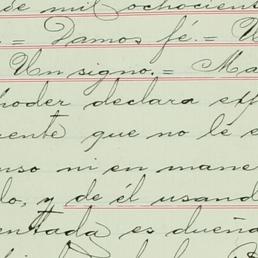 de mil ochocient
= Damos fé. = U
Un signo. = Ma
poder declara exp
cente que no le e
uso ni en mane
do, y de él usand
entada es dueña